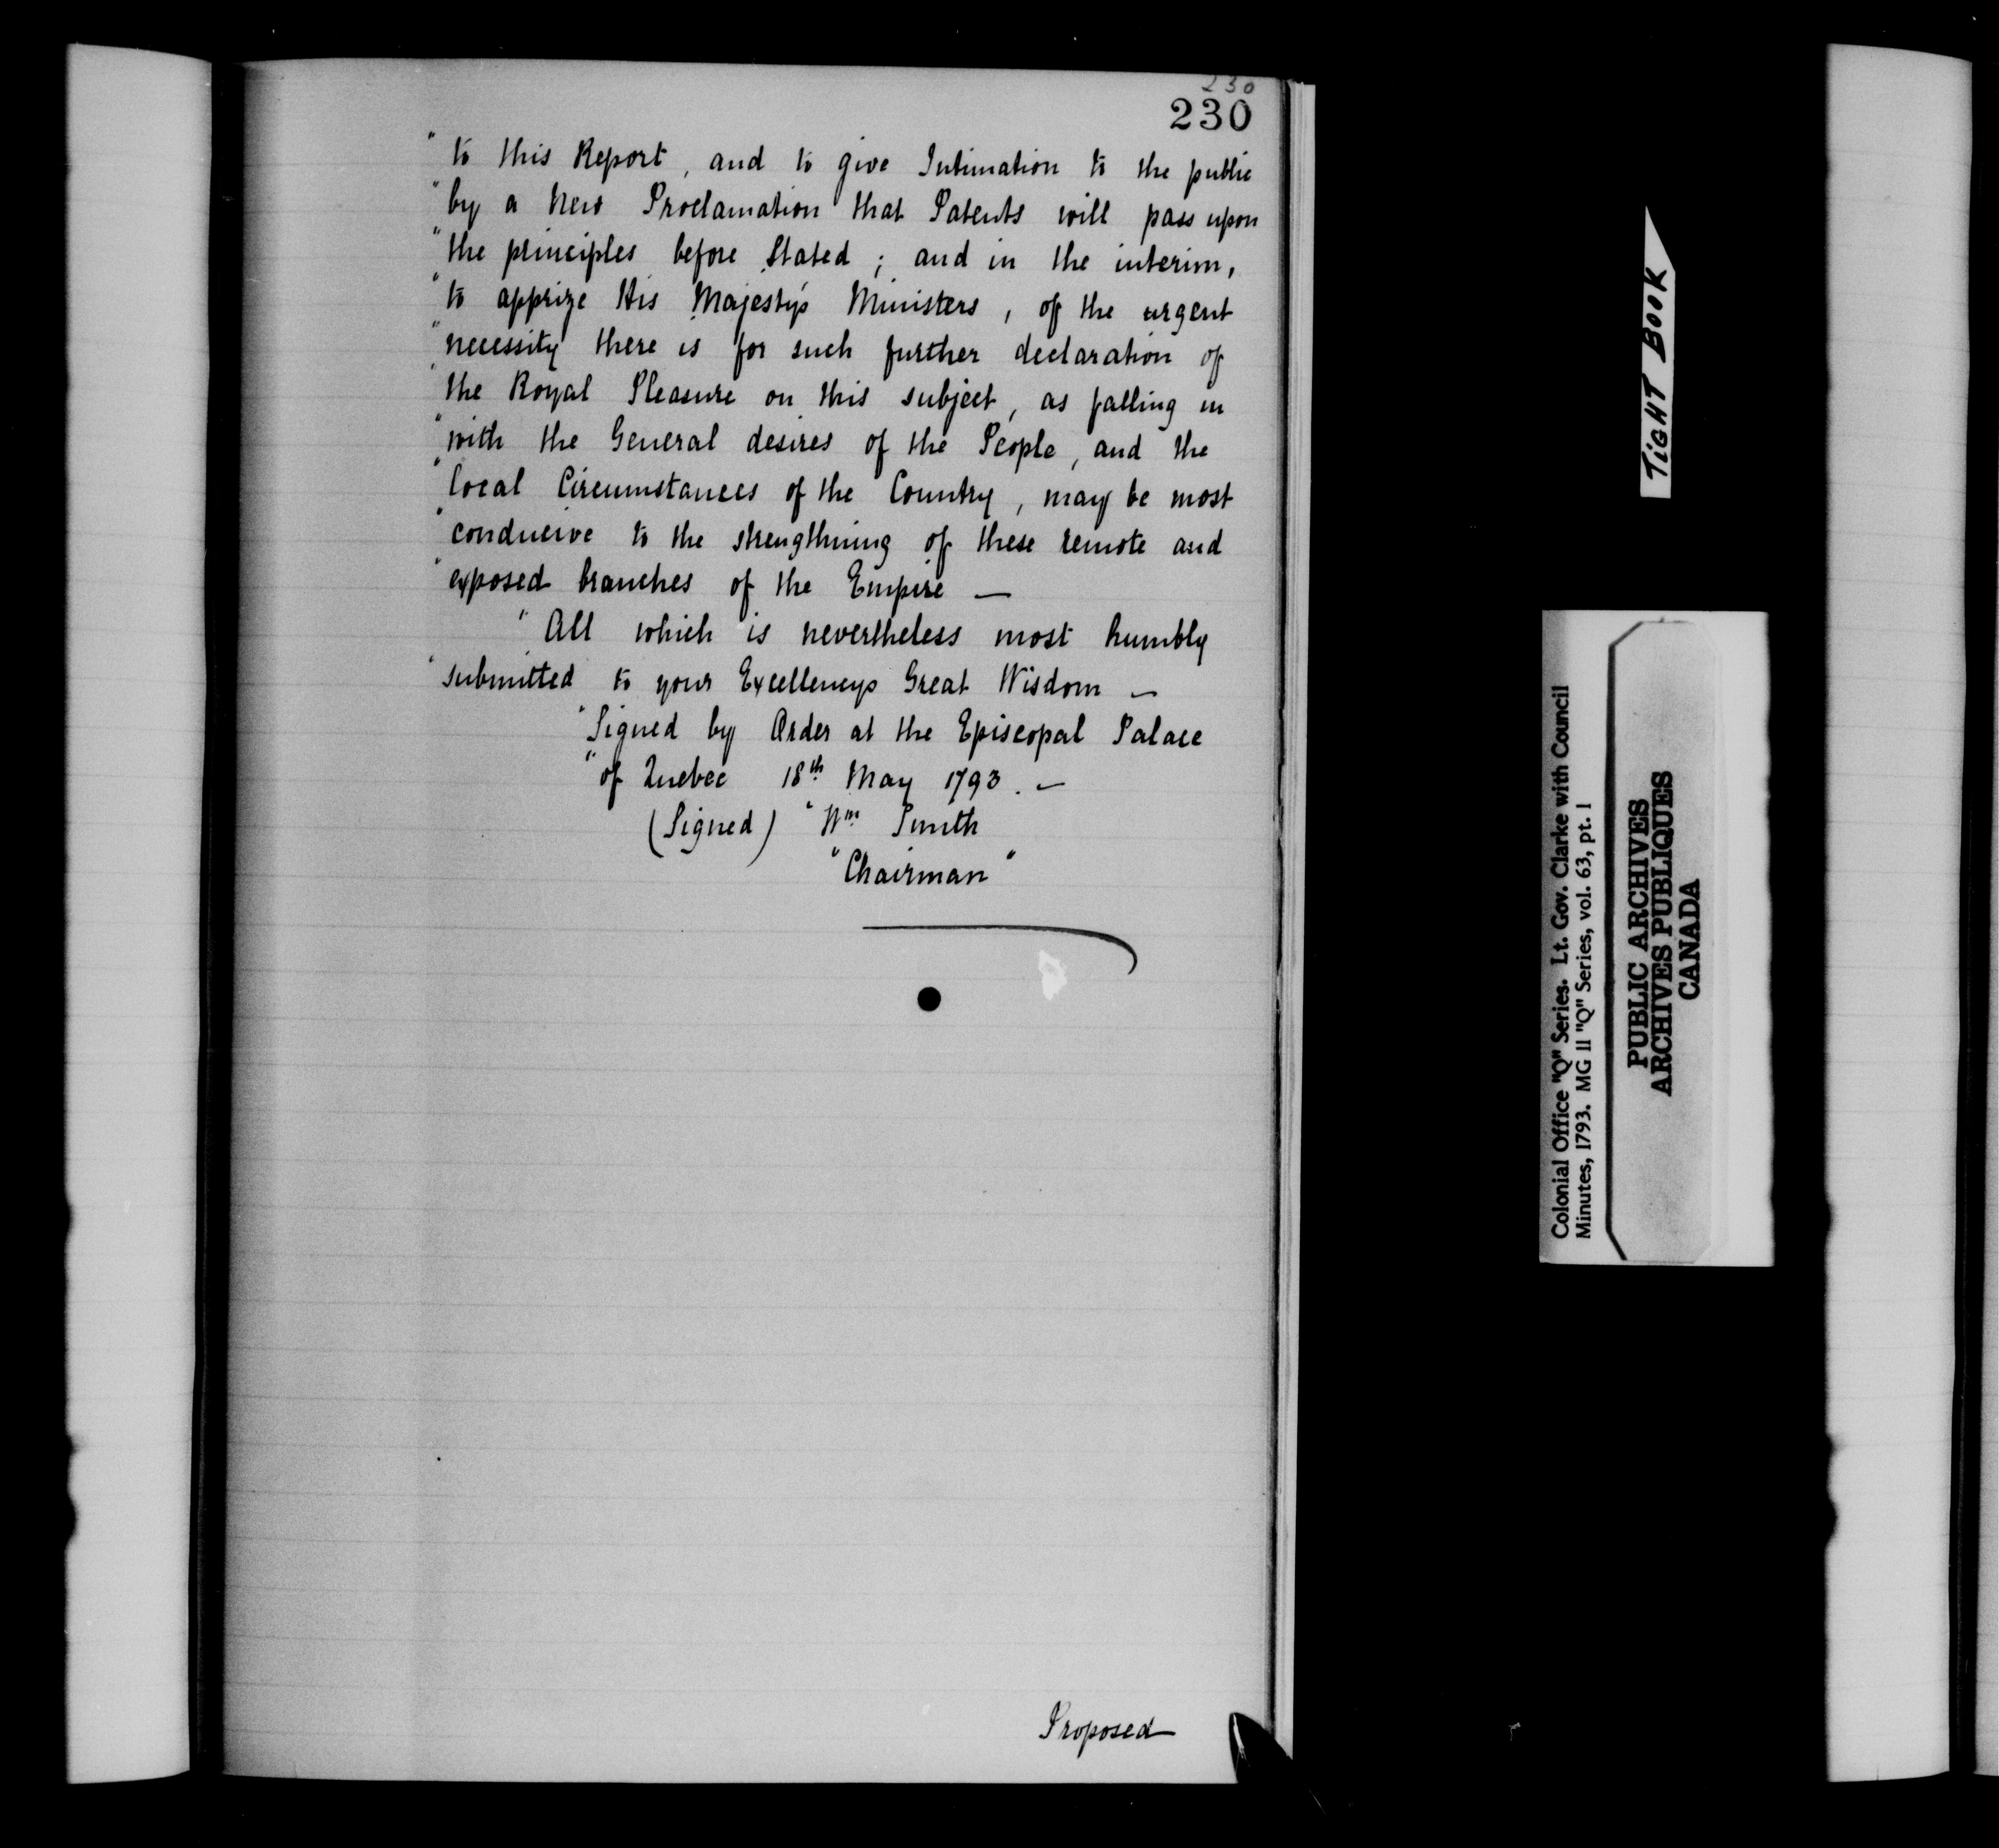 230
230
"to this Report, and to give Intimation to the public
"by a new Proclamation that Patents will pass upon
"the principles before Stated; and in the interim,
"to apprize His Majesty's Ministers, of the urgent
"necessity there is for such further declaration of
"the Royal Pleasure on this subject, as falling in
"with the General desires of the People, and the
"local Circumstances of the Country, may be most
"conducive to the strengthning of these remote and
"exposed branches of the Empire —
"All which is nevertheless most humbly
"submitted to your Excellencys Great Wisdom —
"Signed by Order at the Episcopal Palace
"of Quebec 18th May 1793. —
(Signed) "Wm Smith
"Chairman"
Proposed
TIGHT BOOK
Colonial Office "Q" Series. Lt. Gov. Clarke with Council
Minutes, 1793. MG 11 "Q" Series, vol. 63, pt. 1
PUBLIC ARCHIVES
ARCHIVES PUBLIQUES
CANADA